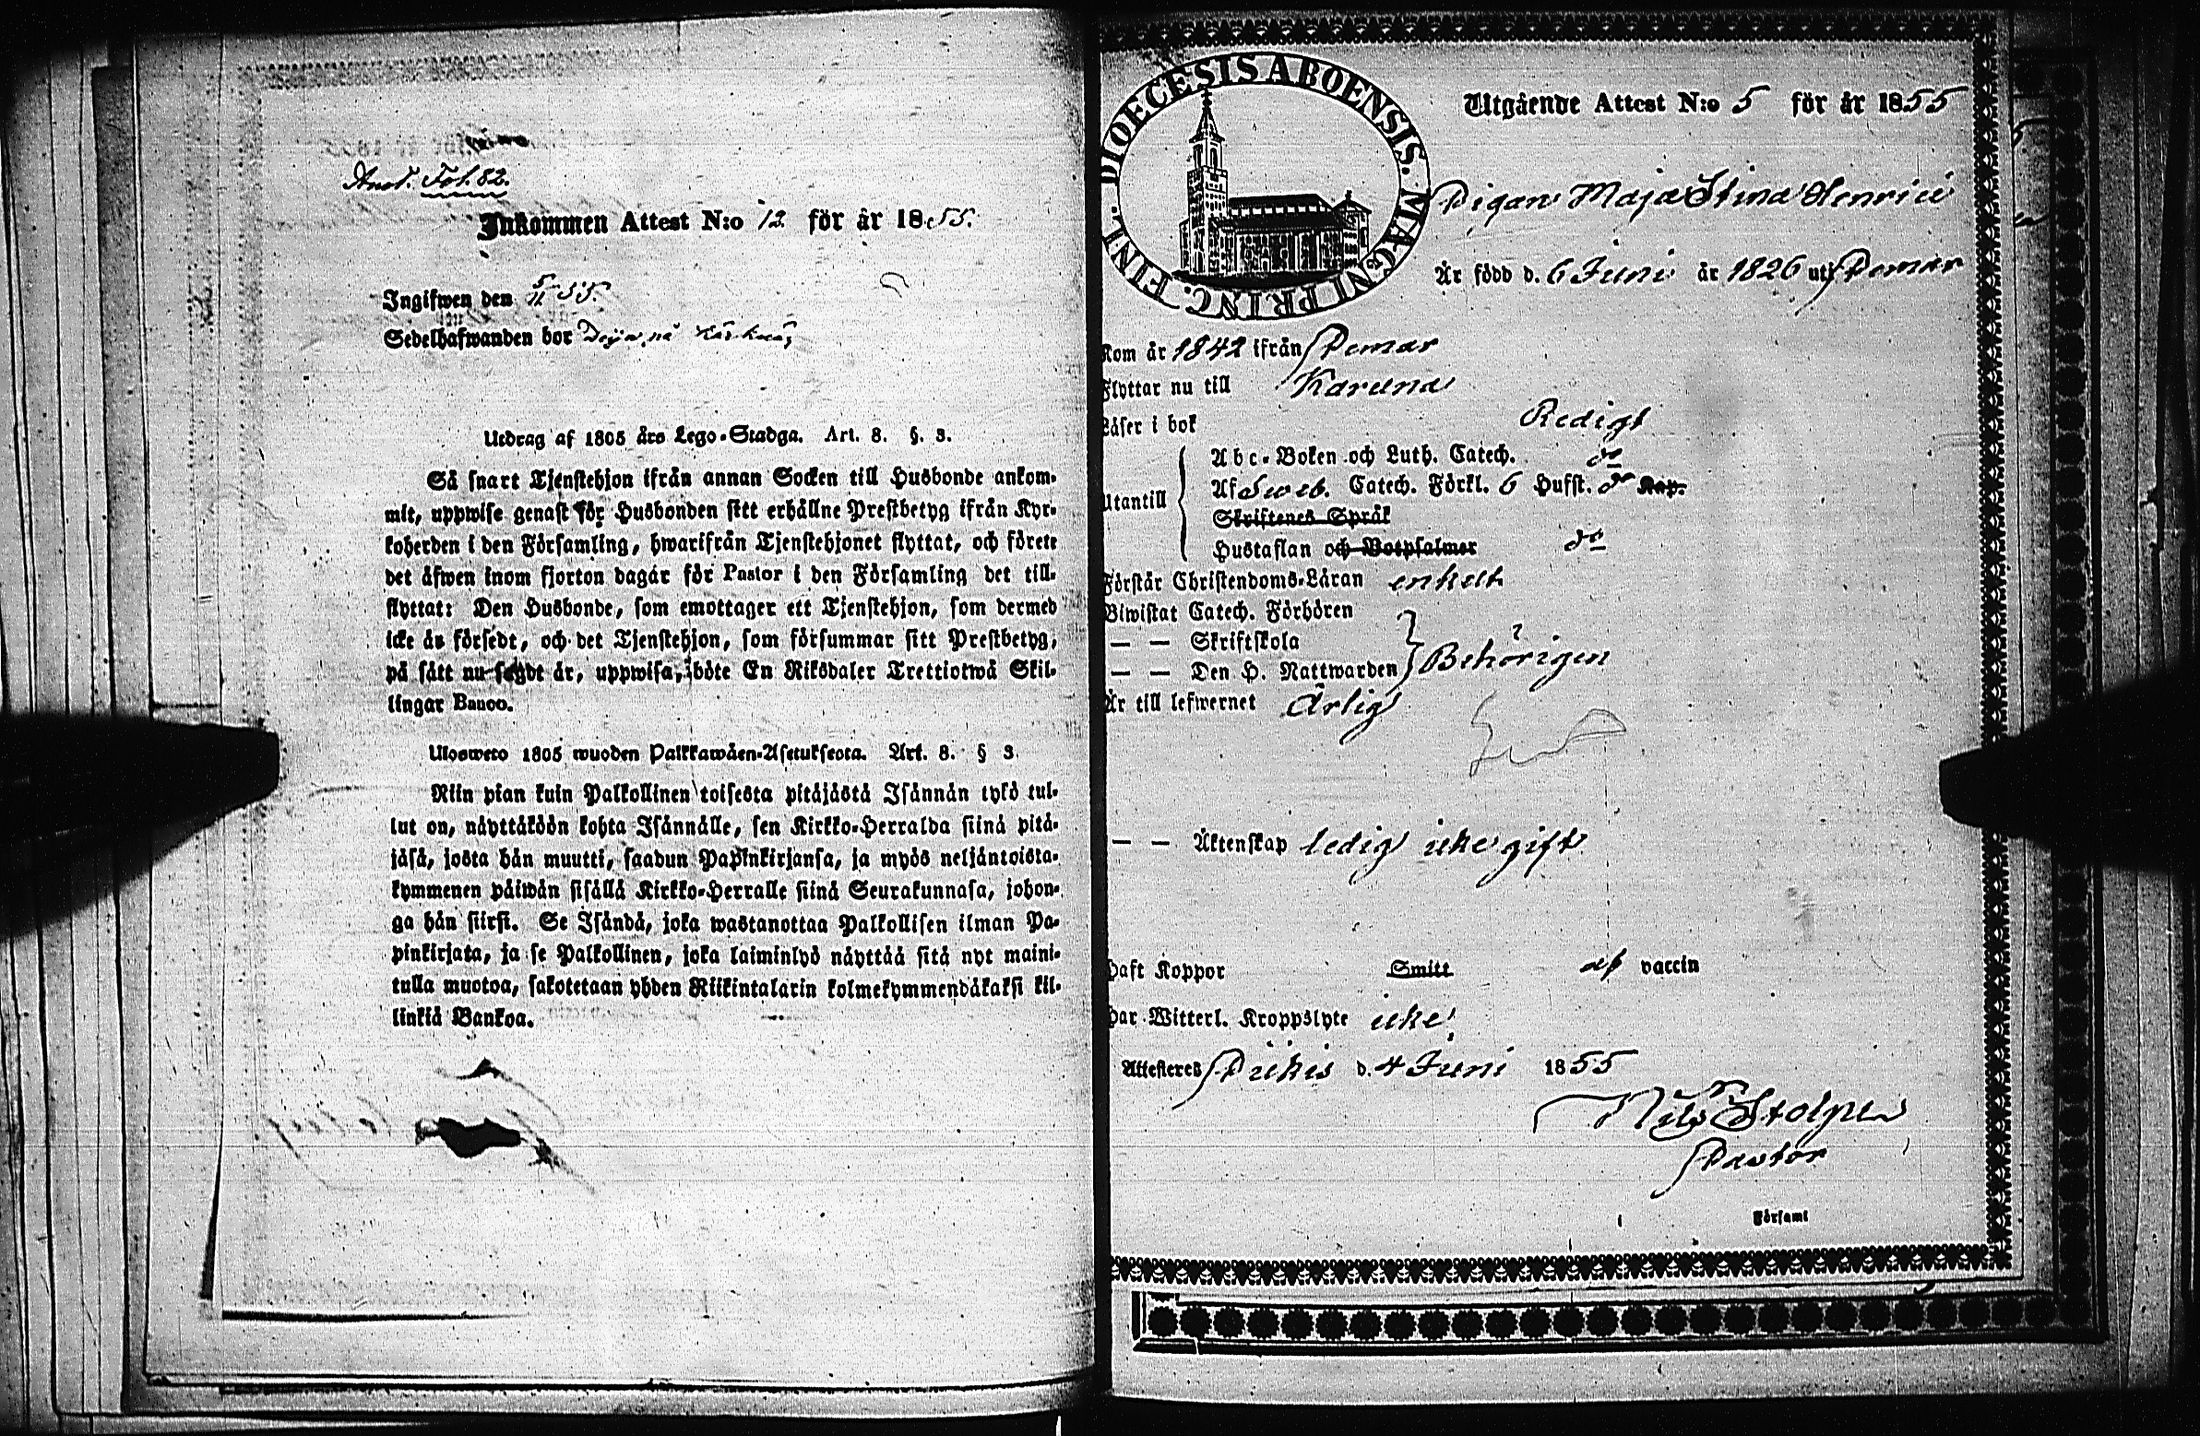 Anot. Fol. 82.
Inkommen Attest N:o 12 för år 1855.
Ingifwen den 5/11 55.
Sedelhafwanden bor Deija på
Utdrag af 1805 års Lego-Stadga. Art. 8. §. 3.
Så snart Tjenstehjon ifrån annan Socken till Husbonde ankom-
mit, uppwise genast för Husbonden sitt erhållne Prestbetyg ifrån Kyr-
koherden i den Församling, hwarifrån Tjenstehjonet flyttat, och förete
det äfwen inom fjorton dagar för Pastor i den Församling det till-
flyttat: Den Husbonde, som emottager ett Tjenstehjon, som dermed
icke är försedt, och det Tjenstehjon, som försummar sitt Prestbetyg,
på sätt nu sagdt är, uppwisa, böte En Riksdaler Trettiotwå Skil-
lingar Banco.
Ulosweto 1805 wuoden Palkkawäen-Asetuksesta. Art. 8. § 3.
Niin pian kuin Palkollinen toisesta pitäjästä Isännän tykö tul-
lut on, näyttäköön kohta Isännälle, sen Kirkko-Herralda siinä pitä-
jäsä, josta hän muutti, saadun Papinkirjansa, ja myös neljäntoista-
kymmenen päiwän sisällä Kirkko-Herralle siinä Seurakunnasa, johon-
ga hän siirsi. Se Isändä, joka wastanottaa Palkollisen ilman Pa-
pinkirjata, ja se Palkollinen, joka laiminlyö näyttää sitä nyt maini-
tulla muotoa, sakotetaan yhden Riikintalarin kolmekymmendäkaksi kil-
linkiä Bankoa.
DIOECESIS ABOENSIS. MAGNI PRINC. FINL.
Utgående Attest N:o 5 för år 1855
Pigan Maja Stina Henrici
Är född d. 6 Juni år 1826 uti Pemar
Kom år 1842 ifrån Pemar
Flyttar nu till Karuna
Läser i bok Redigt
Utantill
Abc-Boken och Luth. Catech. do
Af Sweb. Catech. Förkl. 6 Hufst. do Kap.
Skriftenes Språk
Hustaflan och Botpsalmer do
Förstår Christendoms-Läran enkelt
Biwistat Catech. Förhören
— — Skriftskola
— — Den H. Nattwarden Behörigen
Är till lefwernet Ärlig
— — Äktenskap ledig icke gift
Haft Koppor Smitt af vaccin
Har Witterl. Kroppslyte icke
Attesteras Piikis d. 4 Juni 1855
Nils Stolpe
Pastor
Församl